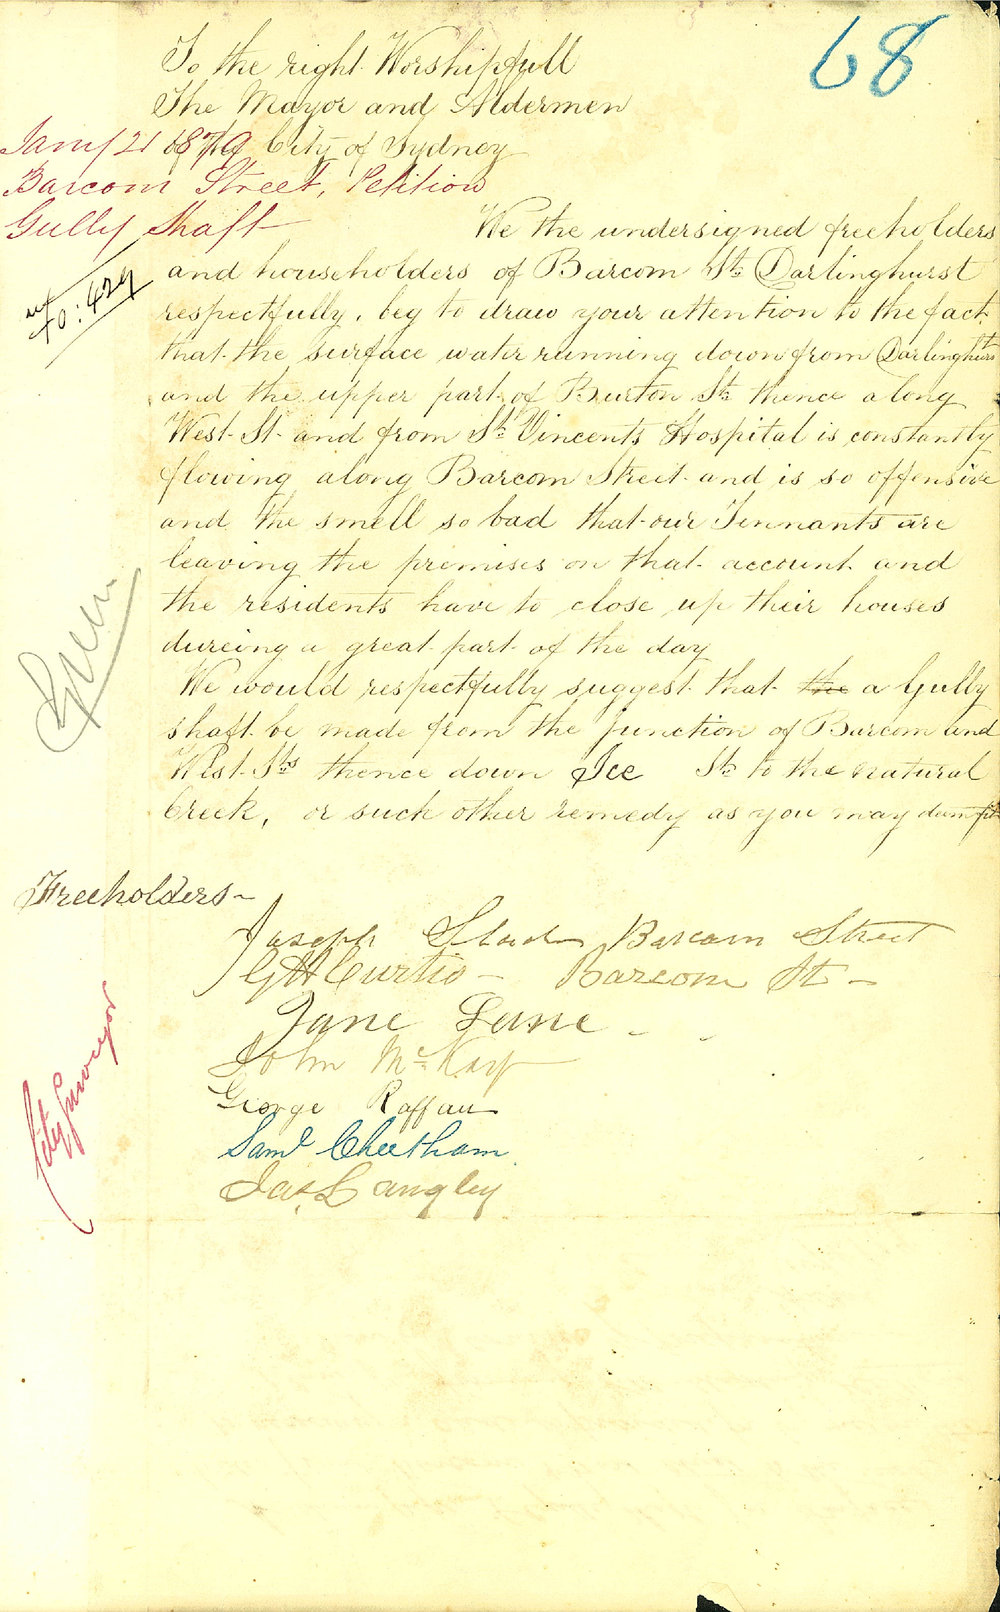 68
To the right Worshipfull
The Mayor and Aldermen
of the City of Sydney
Jany 21 1879
Barcom Street, Petition
Gully Shaft
We the undersigned freeholders
and householders of Barcom St. Darlinghurst
respectfully, beg to draw your attention to the fact
that the surface water running down from Darlinghurst
and the upper part of Burton St. thence along
West St. and from St. Vincents Hospital is constantly
flowing along Barcom Street and is so offensive
and the smell so bad that our Tennants are
leaving the premises on that account and
the residents have to close up their houses
dureing a great part of the day
We would respectfully suggest that the a Gully
shaft be made from the junction of Barcom and
West Sts thence down Ice St. to the natural
Creek, or such other remedy as you may
Freeholders
Joseph Barcom Street
G H Curtis - Barcom St -
Jane Lane
John McKay
George Raffan
Saml Cheetham
Jas. Langley
City Surveyor